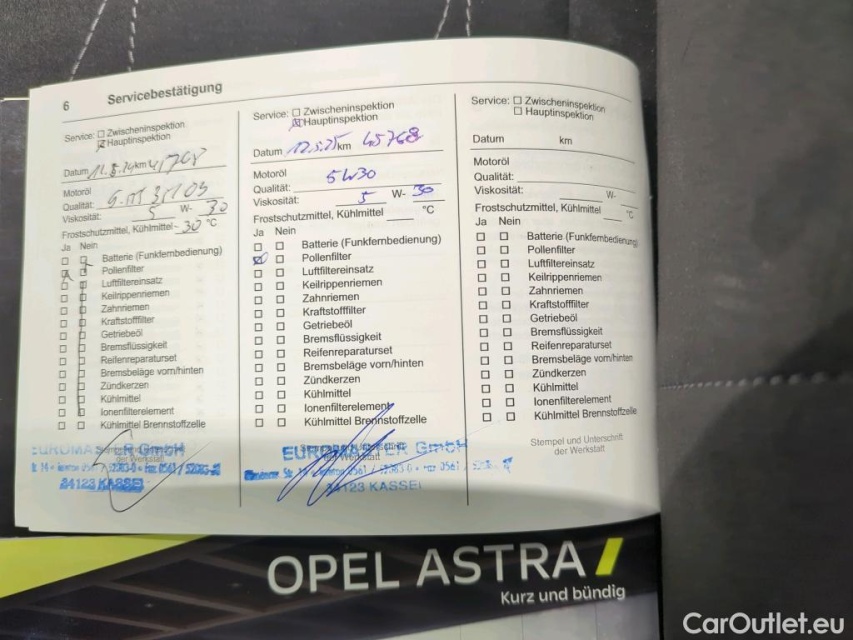 6 Servicebestätigung
Service: Zwischeninspektion
Hauptinspektion
Datum 11.8.24 km 41708
Motoröl
Qualität:
Viskosität: 5 W- 30
Frostschutzmittel, Kühlmittel - 30 °C
Ja Nein
Batterie (Funkfernbedienung)
Pollenfilter
Luftfiltereinsatz
Keilrippenriemen
Zahnriemen
Kraftstofffilter
Getriebeöl
Bremsflüssigkeit
Reifenreparaturset
Bremsbeläge vorn/hinten
Zündkerzen
Kühlmittel
Ionenfilterelement
Kühlmittel Brennstoffzelle
EUROMASTER GmbH
der Werkstatt
34123 KASSEL
Service: Zwischeninspektion
Hauptinspektion
Datum 12.5.25 km 45768
Motoröl 5W30
Qualität:
Viskosität: 5 W- 30
Frostschutzmittel, Kühlmittel °C
Ja Nein
Batterie (Funkfernbedienung)
Pollenfilter
Luftfiltereinsatz
Keilrippenriemen
Zahnriemen
Kraftstofffilter
Getriebeöl
Bremsflüssigkeit
Reifenreparaturset
Bremsbeläge vorn/hinten
Zündkerzen
Kühlmittel
Ionenfilterelement
Kühlmittel Brennstoffzelle
EUROMASTER GmbH
34123 KASSEL
Service: Zwischeninspektion
Hauptinspektion
Datum km
Motoröl
Qualität:
Viskosität: W-
Frostschutzmittel, Kühlmittel °C
Ja Nein
Batterie (Funkfernbedienung)
Pollenfilter
Luftfiltereinsatz
Keilrippenriemen
Zahnriemen
Kraftstofffilter
Getriebeöl
Bremsflüssigkeit
Reifenreparaturset
Bremsbeläge vorn/hinten
Zündkerzen
Kühlmittel
Ionenfilterelement
Kühlmittel Brennstoffzelle
Stempel und Unterschrift
der Werkstatt
OPEL ASTRA
Kurz und bündig
CarOutlet.eu